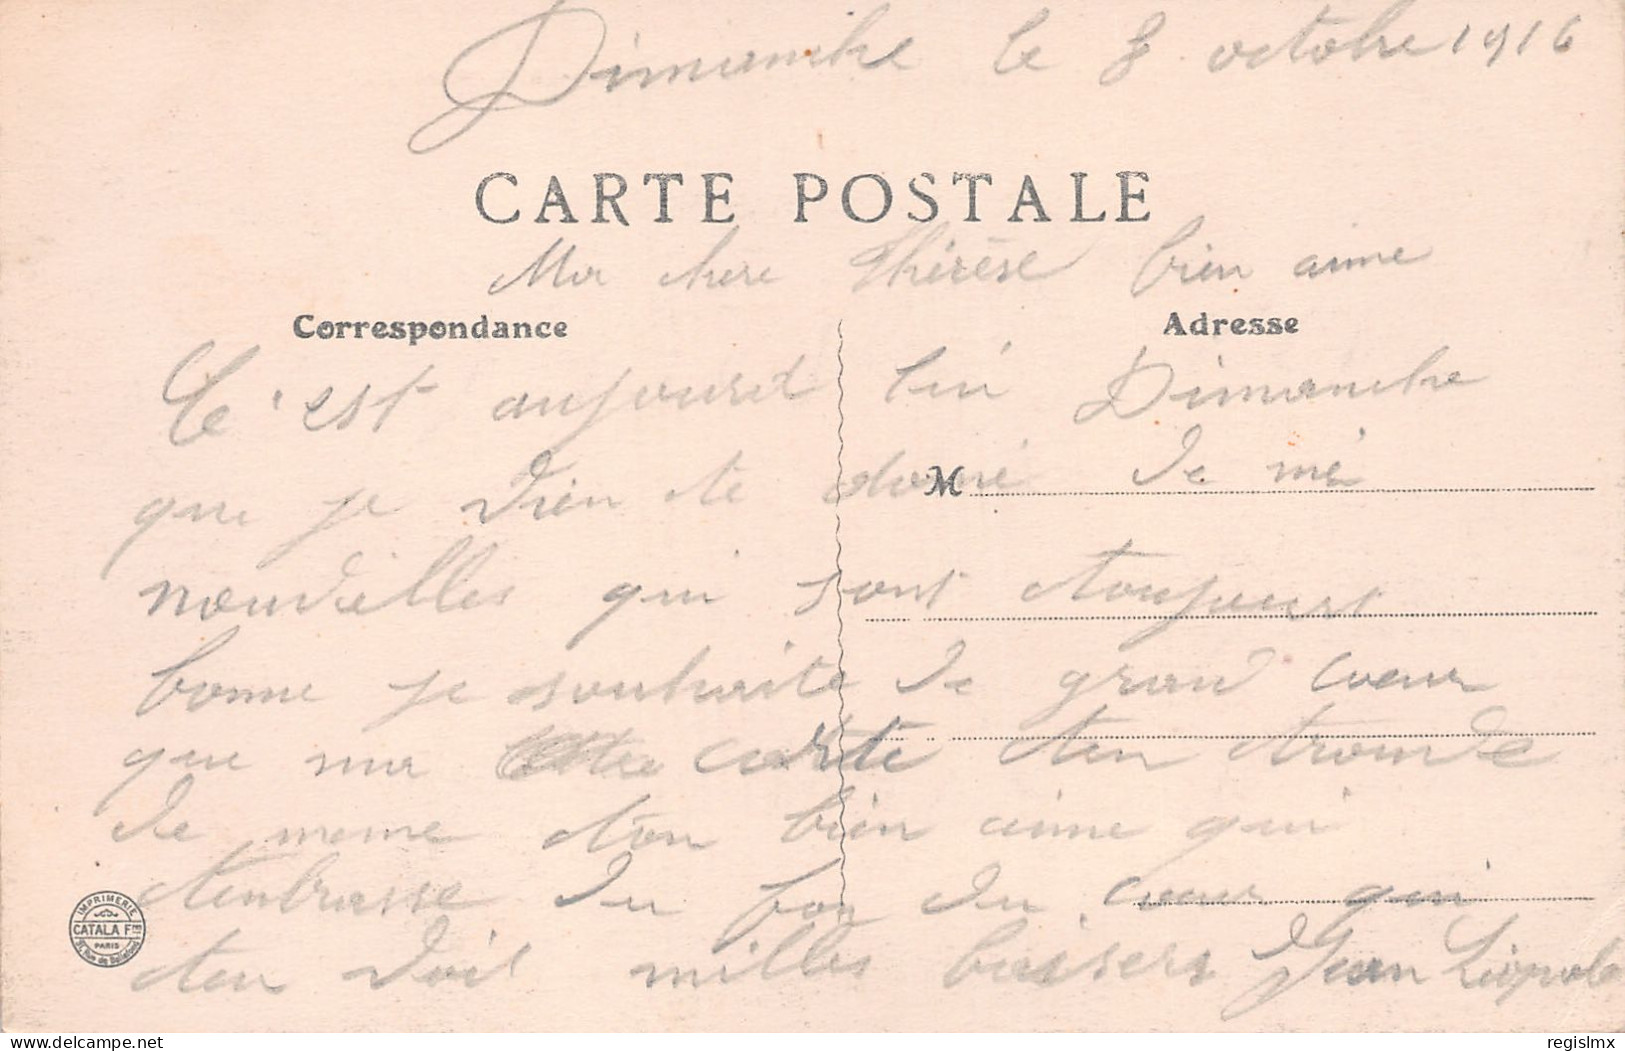 Dimanche le 8 octobre 1916
CARTE POSTALE
Ma chere Thérèse bien aime
Correspondance
Adresse
C'est aujourd'hui Dimanche
que je vien te donné de mé
M
nouvelles qui sont toujours
bonne je souhaite de grand cœur
que ma carte ten trouve
de meme ton bien aime qui
tenbrasse du fon du cœur qui
ten voit milles baisers Jean Léopold
IMPRIMERIE
CATALA F
PARIS
regislmx